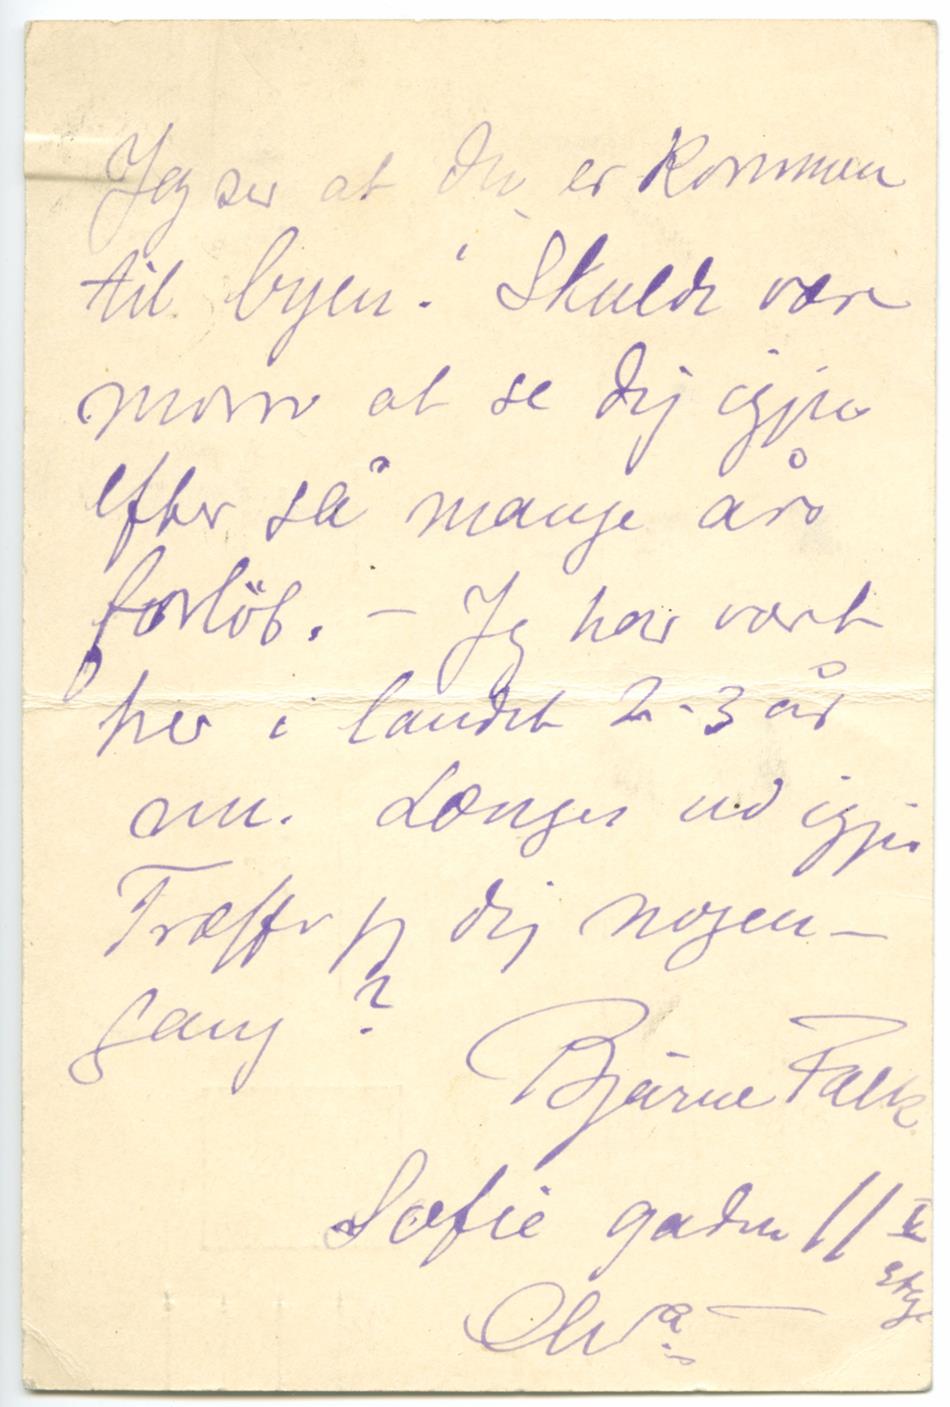 Jeg ser at du er kommen
til byen! Skulde være
morro at se dig igjen
efter så mange års
forløb. – Jeg har været
her i landet 2-3 år
nu. Længes ud igjen
Træffer jeg dig nogen-
gang?
Bjarne Falk
Sofie gaden 11 V
etg.
Chra